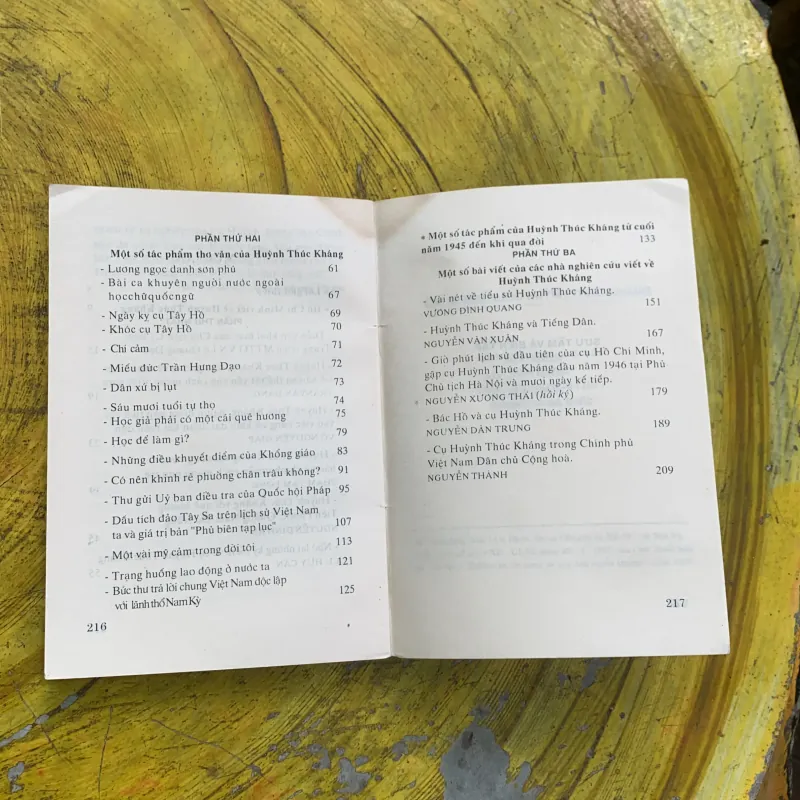 PHẦN THỨ HAI
Một số tác phẩm thơ văn của Huỳnh Thúc Kháng
- Lương ngọc danh sơn phú 61
- Bài ca khuyên người nước ngoài
họcchữquốcngữ 67
- Ngày kỵ cụ Tây Hồ 69
- Khóc cụ Tây Hồ 70
- Chí cảm 71
- Miếu đức Trần Hưng Đạo 72
- Dân xứ bị lụt 73
- Sáu mươi tuổi tự thọ 74
- Học giả phải có một cái quê hương 75
- Học để làm gì? 79
- Những điều khuyết điểm của Khổng giáo 83
- Có nên khinh rẻ phường chân trâu không? 91
- Thư gửi Uỷ ban điều tra của Quốc hội Pháp 95
- Dấu tích đảo Tây Sa trên lịch sử Việt Nam
ta và giá trị bản "Phủ biên tạp lục" 107
- Một vài mỹ cảm trong đời tôi 113
- Trạng huống lao động ở nước ta 121
- Bức thư trả lời chung Việt Nam độc lập
với lãnh thổ Nam Kỳ 125
216
* Một số tác phẩm của Huỳnh Thúc Kháng từ cuối
năm 1945 đến khi qua đời 133
PHẦN THỨ BA
Một số bài viết của các nhà nghiên cứu viết về
Huỳnh Thúc Kháng
- Vài nét về tiểu sử Huỳnh Thúc Kháng.
VƯƠNG ĐÌNH QUANG 151
- Huỳnh Thúc Kháng và Tiếng Dân.
NGUYỄN VĂN XUÂN 167
- Giờ phút lịch sử đầu tiên của cụ Hồ Chí Minh,
gặp cụ Huỳnh Thúc Kháng đầu năm 1946 tại Phủ
Chủ tịch Hà Nội và mươi ngày kế tiếp.
NGUYỄN XƯƠNG THÁI (hồi ký) 179
- Bác Hồ và cụ Huỳnh Thúc Kháng.
NGUYỄN DÂN TRUNG 189
- Cụ Huỳnh Thúc Kháng trong Chính phủ
Việt Nam Dân chủ Cộng hoà.
NGUYỄN THÀNH 209
217